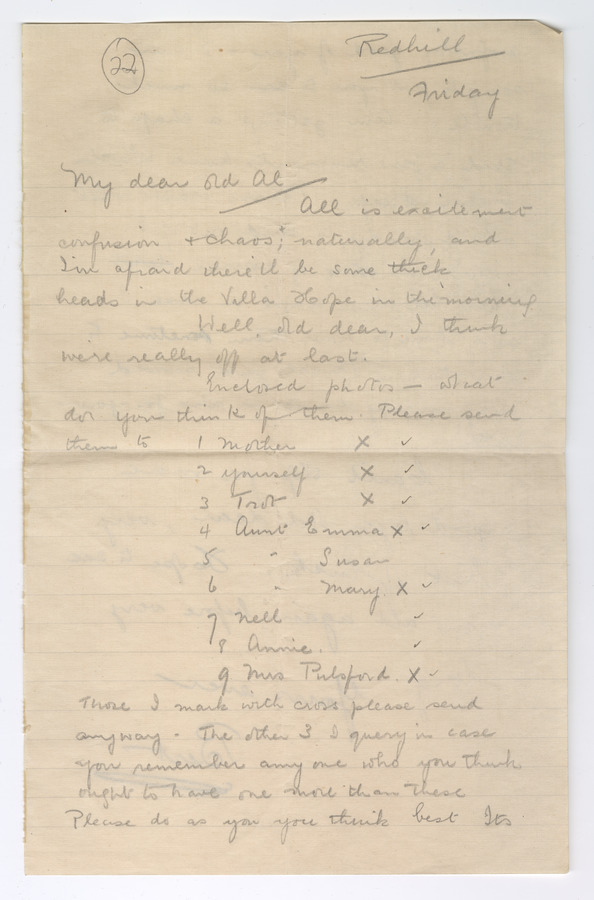 22
Redhill
Friday
My dear old Al
All is excitement
confusion + chaos; naturally, and
I'm afraid there'll be some thick
heads in the Villa Hope in the morning
Well, old dear, I think
we're really off at last.
Enclosed photos — what
do you think of them. Please send
them to 1 Mother X ✓
2 yourself X ✓
3 Trot X ✓
4 Aunt Emma X ✓
5 " Susan
6 " Mary. X ✓
7 Nell ✓
8 Annie. ✓
9 Mrs Pulsford. X ✓
Those I mark with cross please send
anyway - The other 3 I query in case
you remember any one who you think
ought to have one more than these
Please do as you you think best Its